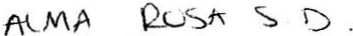 ALMA ROSA S D.